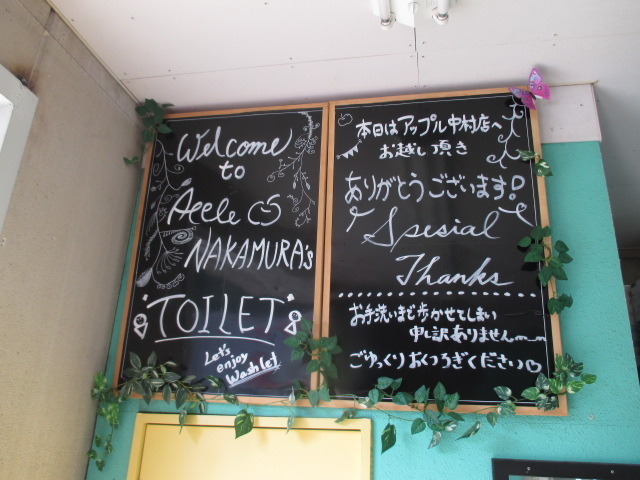 Welcome
to
Apple
NAKAMURA's
TOILET
Let's
enjoy
Washlet
本日はアップル中村店へ
お越し頂き
ありがとうございます!
Spesial
Thanks
お手洗いまで歩かせてしまい
申し訳ありませんm_m
ごゆっくりおくつろぎください♡